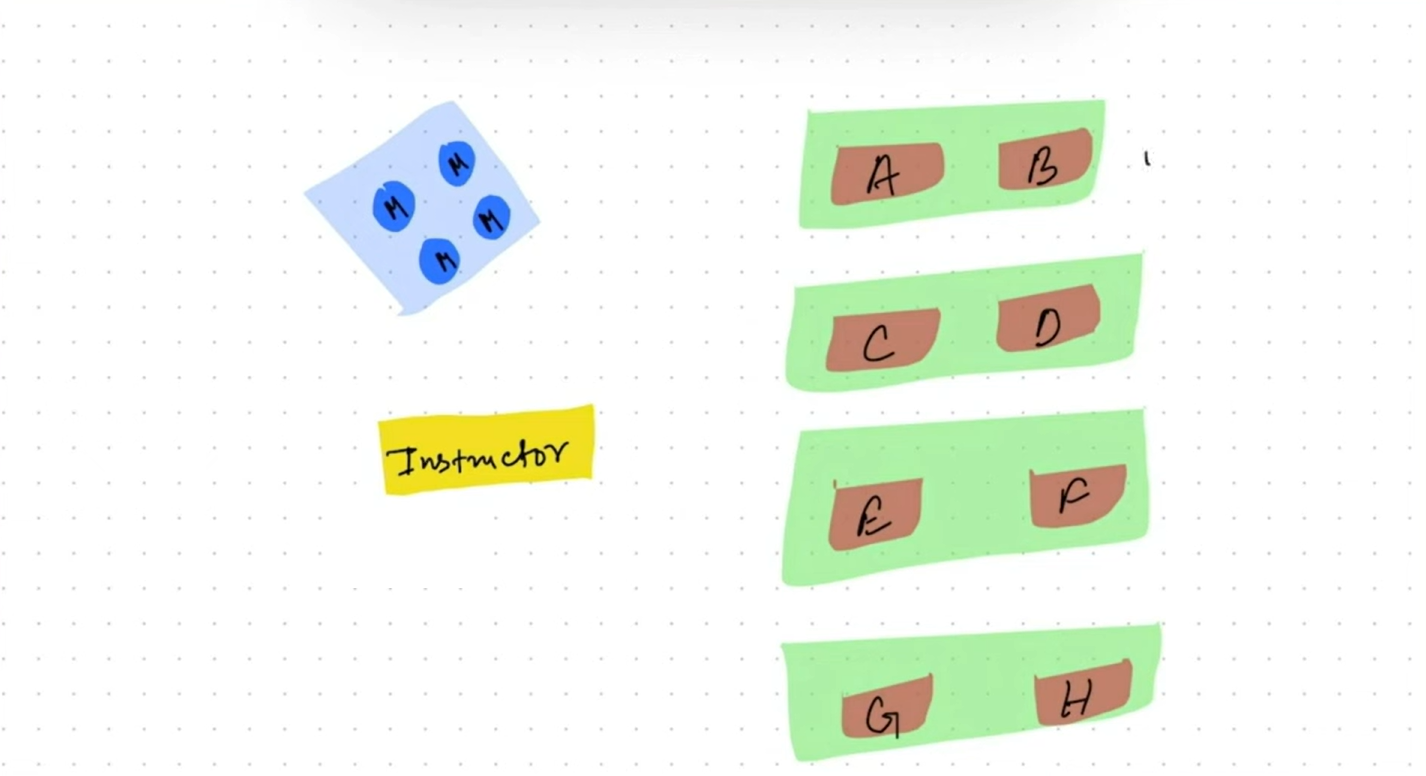 M
M
M
M
Instructor
A B
C D
E F
G H